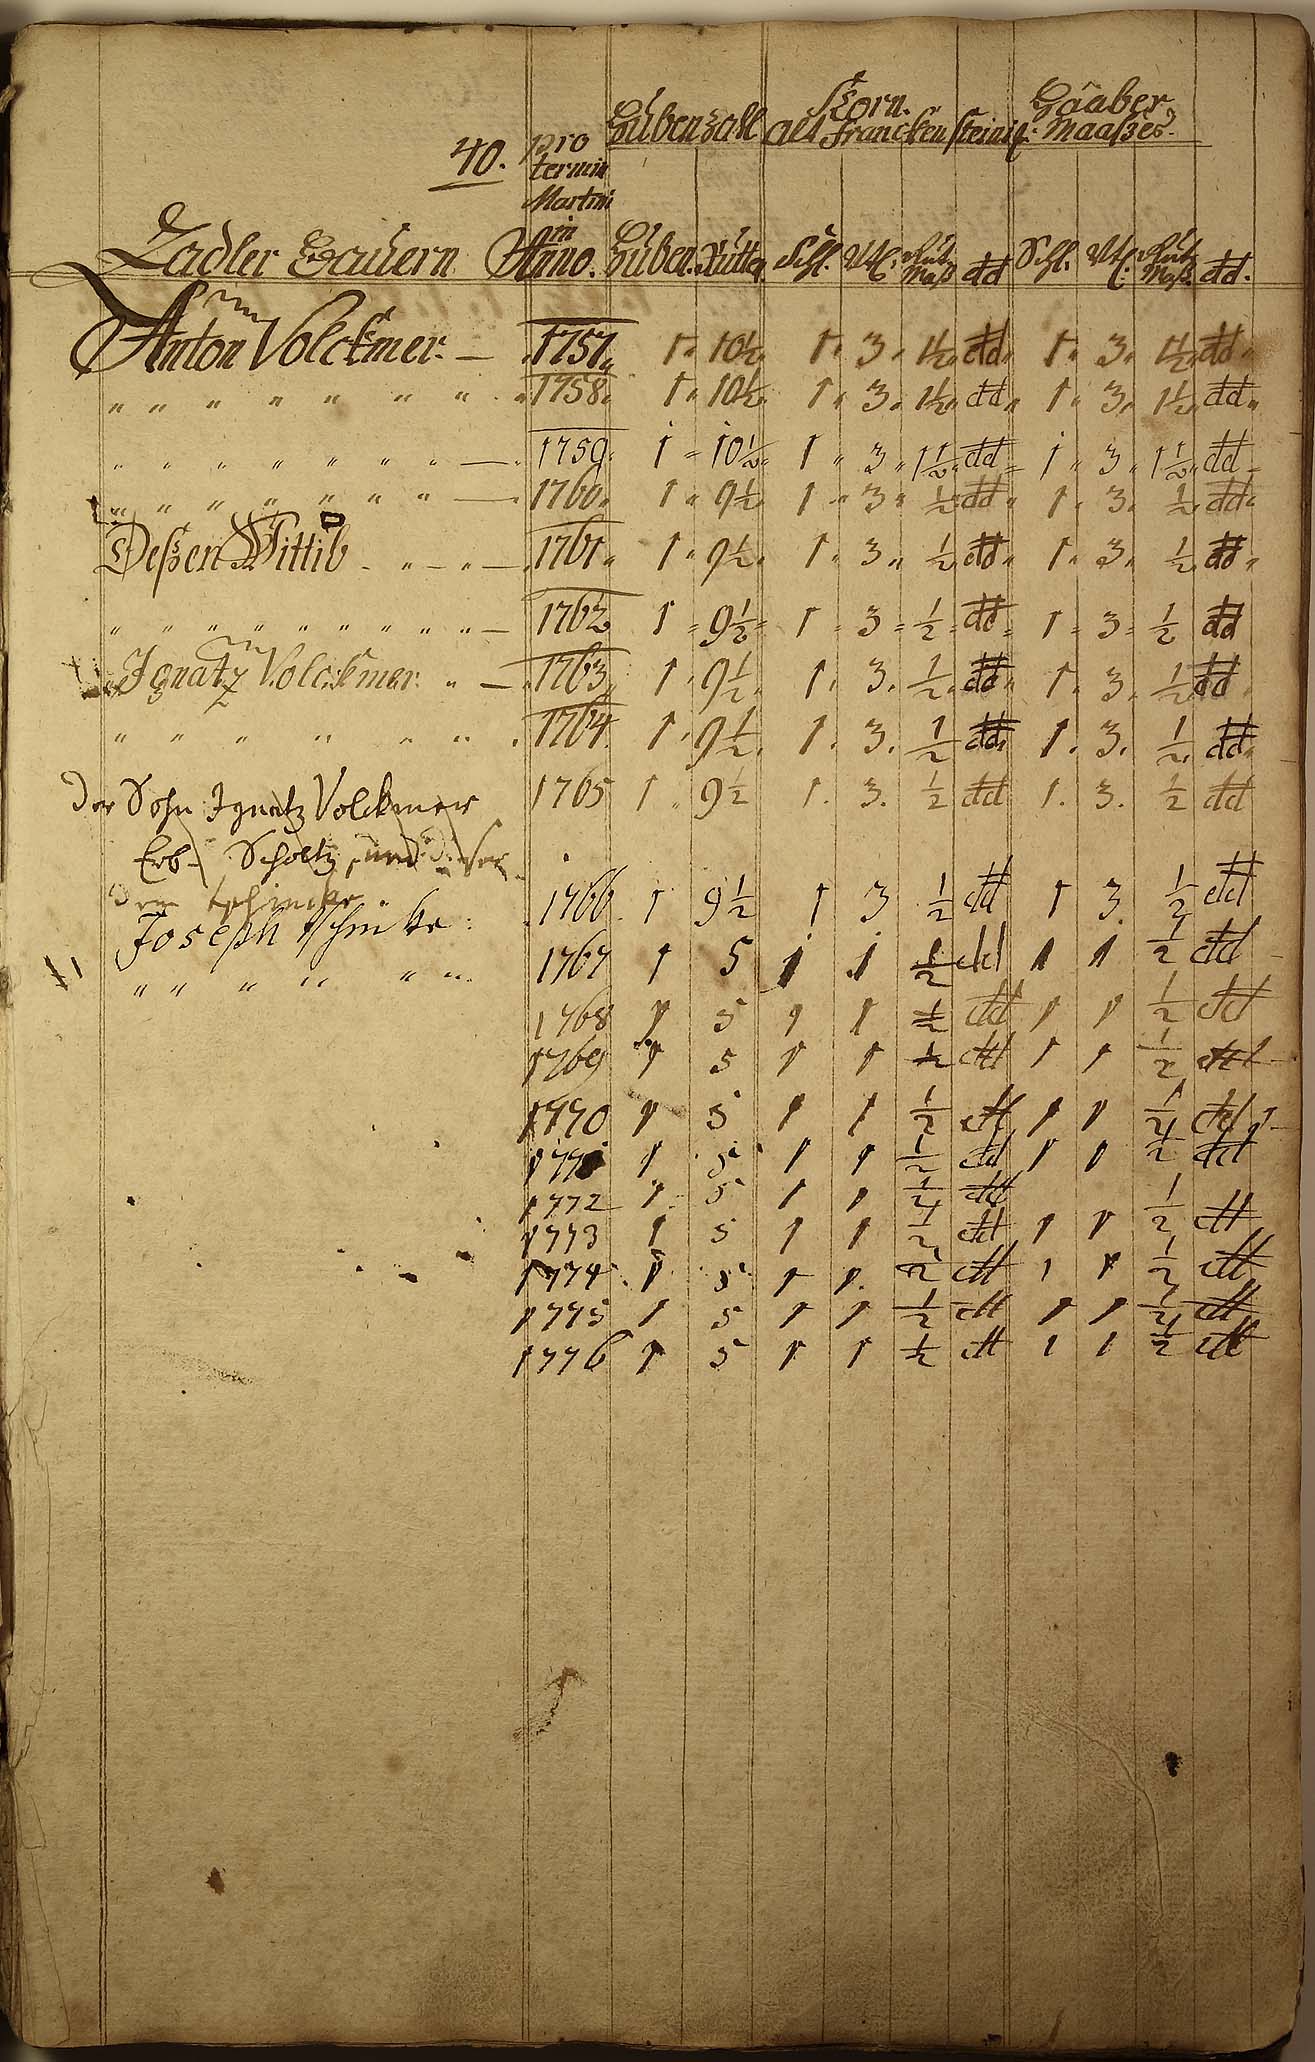 Korn. Haaber
Hubenzall alt Franckensteinig: Maaßes.
40. pro
termin
Martini
in
Zadler Bauern Anno. Huben. Rutten. Schl. Vtl: Metz Maß dd Schl. Vtl: Metz Maß. dd.
Anton Volckmer. — 1757 1 10½ 1 3 1½ dd 1 3 1½ dd
" " " " " " " " 1758 1 10½ 1 3 1½ dd 1 3 1½ dd
" " " " " " " " — 1759 1 10½ 1 3 1½ dd 1 3 1½ dd
" " " " " " " — 1760 1 9½ 1 3 ½ dd 1 3 ½ dd
Deßen Wittib - " - " — 1761 1 9½ 1 3 ½ dd 1 3 ½ dd
" " " " " " " " " " — 1762 1 9½ 1 3 ½ dd 1 3 ½ dd
Ignatz Volckmer " — 1763 1 9½ 1. 3. ½ dd 1. 3. ½ dd
" " " " " " 1764 1 9½ 1. 3. ½ dd 1. 3. ½ dd
1765 1 9½ 1. 3. ½ dd 1. 3. ½ dd
Der Sohn Ignatz Volckmer
Erb- Scholtz, und
1766 1 9½ 1 3 ½ dd 1 3 ½ dd
Joseph Tschinke:
" " " " " " 1767 1 5 1 1 ½ dd 1 1 ½ dd
1768 1 5 1 1 ½ dd 1 1 ½ dd
1769 1 5 1 1 ½ dd 1 1 ½ dd
1770 1 5 1 1 ½ dd 1 1 ½ dd
1771 1 5 1 1 ½ dd 1 1 ½ dd
1772 1 5 1 1 ½ dd ½
1773 1 5 1 1 ½ dd 1 1 ½ dd
1774 1 5 1 1. ½ dd 1 1 ½ dd
1775 1 5 1 1 ½ dd 1 1 ½ dd
1776 1 5 1 1 ½ dd 1 1 ½ dd